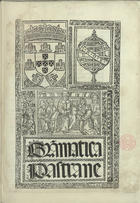 Grãmatica
Pastrane